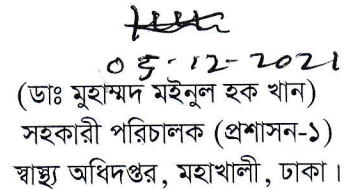 05-12-2021
(ডাঃ মুহাম্মদ মইনুল হক খান)
সহকারী পরিচালক (প্রশাসন-১)
স্বাস্থ্য অধিদপ্তর, মহাখালী, ঢাকা।